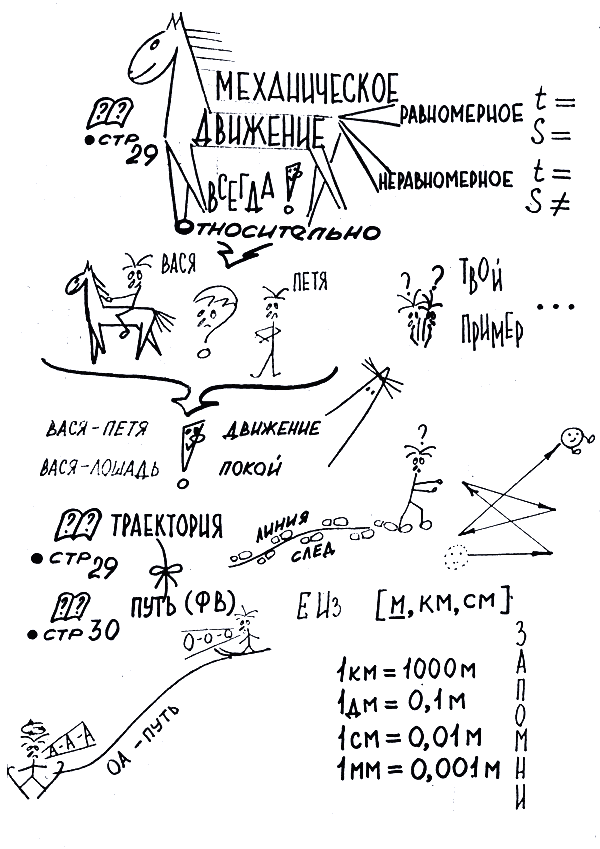 МЕХАНИЧЕСКОЕ
ДВИЖЕНИЕ
РАВНОМЕРНОЕ t =
S =
НЕРАВНОМЕРНОЕ t =
S ≠
??
• СТР 29
ВСЕГДА !
ОТНОСИТЕЛЬНО
ВАСЯ
?
ПЕТЯ
? ?
ТВОЙ
ПРИМЕР ...
ВАСЯ - ПЕТЯ ! ДВИЖЕНИЕ
ВАСЯ - ЛОШАДЬ ПОКОЙ
?
?? ТРАЕКТОРИЯ
• СТР 29
ЛИНИЯ
СЛЕД
?? ПУТЬ (ФВ) ЕИз [м, км, см]
• СТР 30
О-О-О
А-А-А
ОА - ПУТЬ
1км = 1000м
1дм = 0,1м
1см = 0,01м
1мм = 0,001м
ЗАПОМНИ